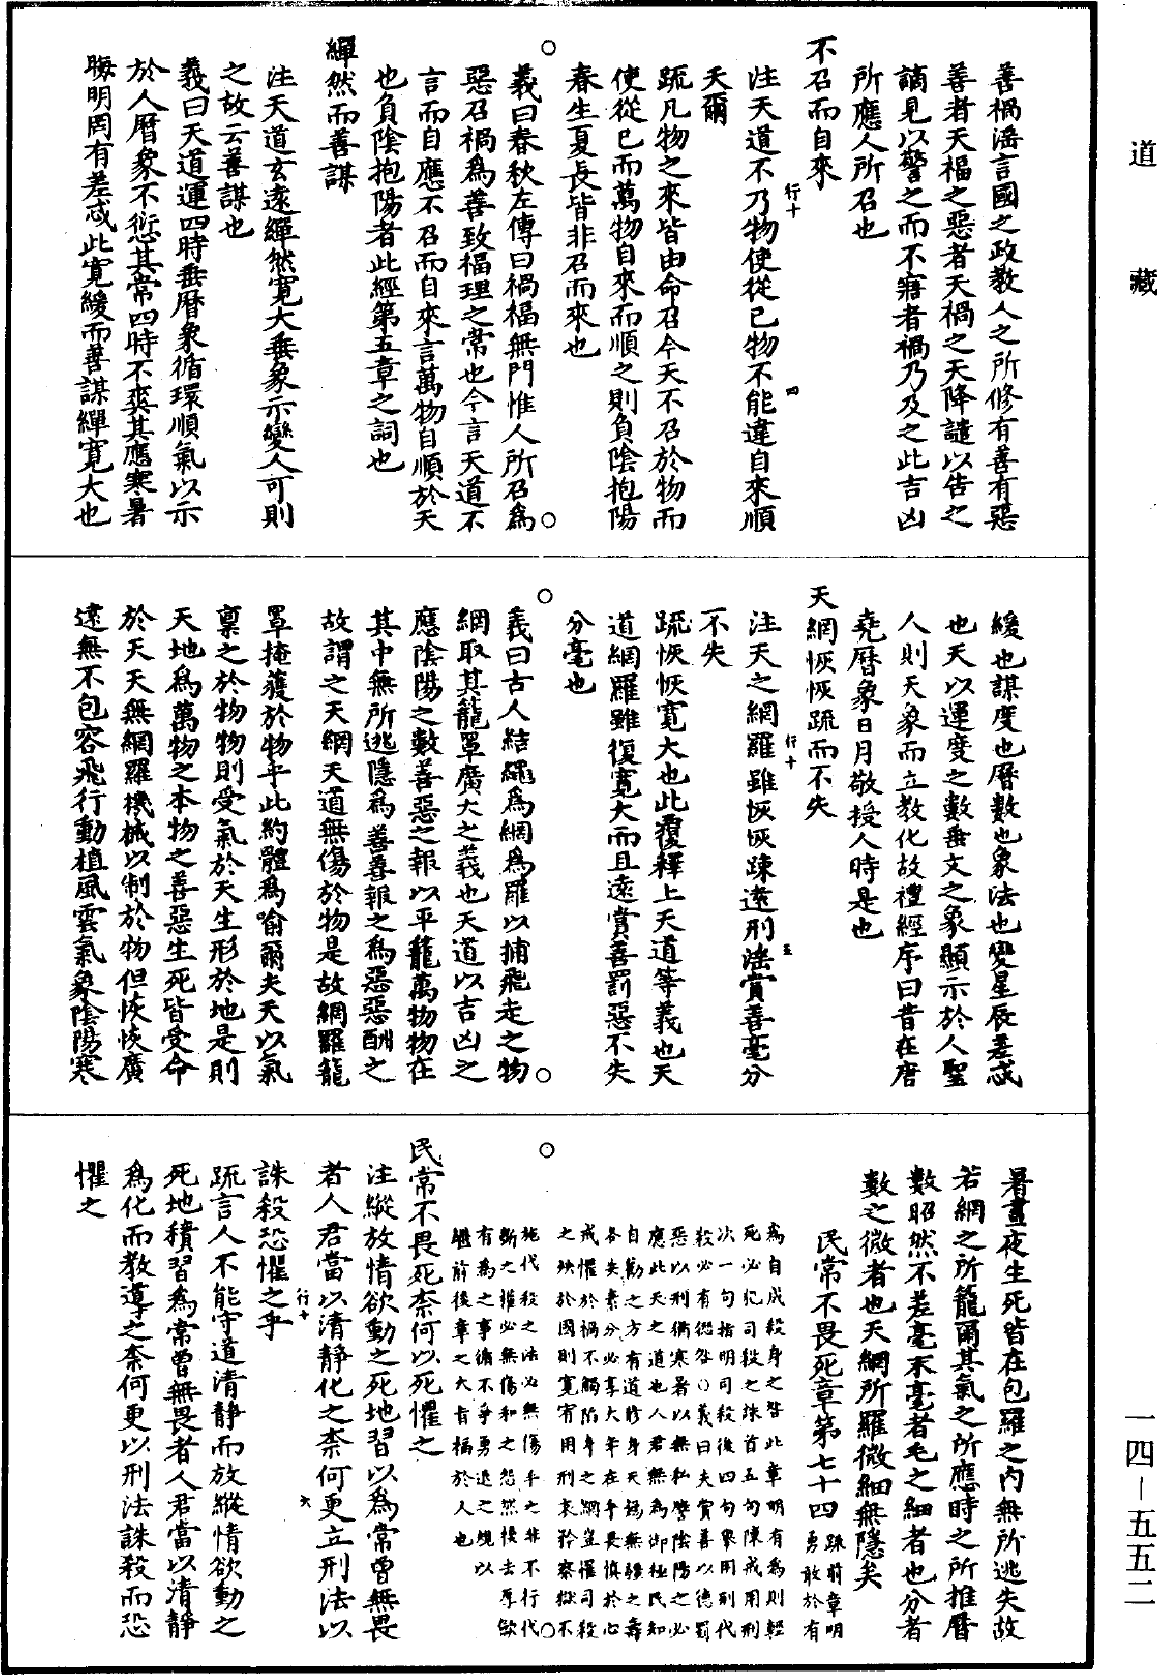 道藏
善禍淫言國之政教人之所修有善有惡
善者天福之惡者天禍之天降譴以告之
謫見以警之而不寤者禍乃及之此吉凶
所應人所召也
不召而自來
注天道不乃物使從已物不能違自來順
行十
四
天爾
疏凡物之來皆由命召今天不召於物而
使從已而萬物自來而順之則負陰抱陽
春生夏長皆非召而來也
○
○
義曰春秋左傳曰禍福無門惟人所召為
惡召禍為善致福理之常也今言天道不
言而自應不召而自來言萬物自順於天
也負陰抱陽者此經第五章之詞也
繟然而善謀
注天道玄遠繟然寬大垂象示變人可則
之故云善謀也
義曰天道運四時垂曆象循環順氣以示
於人曆象不愆其常四時不爽其應寒暑
晦明罔有差忒此寬緩而善謀繟寬大也
緩也謀度也曆數也象法也變星辰差忒
也天以運度之數垂文之象顯示於人聖
人則天象而立教化故禮經序曰昔在唐
堯曆象日月敬授人時是也
天網恢恢疏而不失
注天之網羅雖恢恢踈遠刑淫賞善毫分
行十
五
不失
疏恢恢寬大也此覆釋上天道等義也天
道網羅雖復寬大而且遠賞善罰惡不失
分毫也
○
○
義曰古人結繩為網為羅以捕飛走之物
網取其籠罩廣大之義也天道以吉凶之
應陰陽之數善惡之報以平籠萬物物在
其中無所逃隱為善善報之為惡惡酬之
故謂之天網天道無傷於物是故網羅籠
罩掩蒦於物乎此約體為喻爾夫天以氣
稟之於物物則受氣於天生形於地是則
天地為萬物之本物之善惡生死皆受命
於天天無網羅機械以制於物但恢恢廣
遠無不包容飛行動植風雲氣象陰陽寒
暑晝夜生死皆在包羅之内無所逃失故
若網之所籠爾其氣之所應時之所推曆
數昭然不差毫末毫者毛之細者也分者
數之微者也天網所羅微細無隱矣
民常不畏死章第七十四
疏前章明
勇敢於有
為自成殺身之咎此章明有為則輕
死必犯司殺之誅首五句陳戒用刑
次一句指明司殺後四句舉用刑代
殺必有從咎○義曰夫賞善以德罰
惡以刑猶寒暑以無私𠪱陰陽之必
應此天之道也人君無為御極民知
自勸之方有道修身天錫無疆之壽
各安素分必享大年在乎畏慎於心
戒懼於禍不觸陷身之網豈罹司殺
之殃於國則寬宥用刑哀矜察獄不
○
○
施代殺之法必無傷手之非不行代
斷之權必無傷和之怨然後去厚斂
有為之事循不爭勇退之規以
繼前後章之大旨福於人也
民常不畏死柰何以死懼之
注縱放情欲動之死地習以為常曾無畏
者人君當以清靜化之柰何更立刑法以
誅殺恐懼之乎
行十
六
疏言人不能守道清靜而放縱情欲動之
死地積習為常曾無畏者人君當以清靜
為化而教導之柰何更以刑法誅殺而恐
懼之
一四－五五二